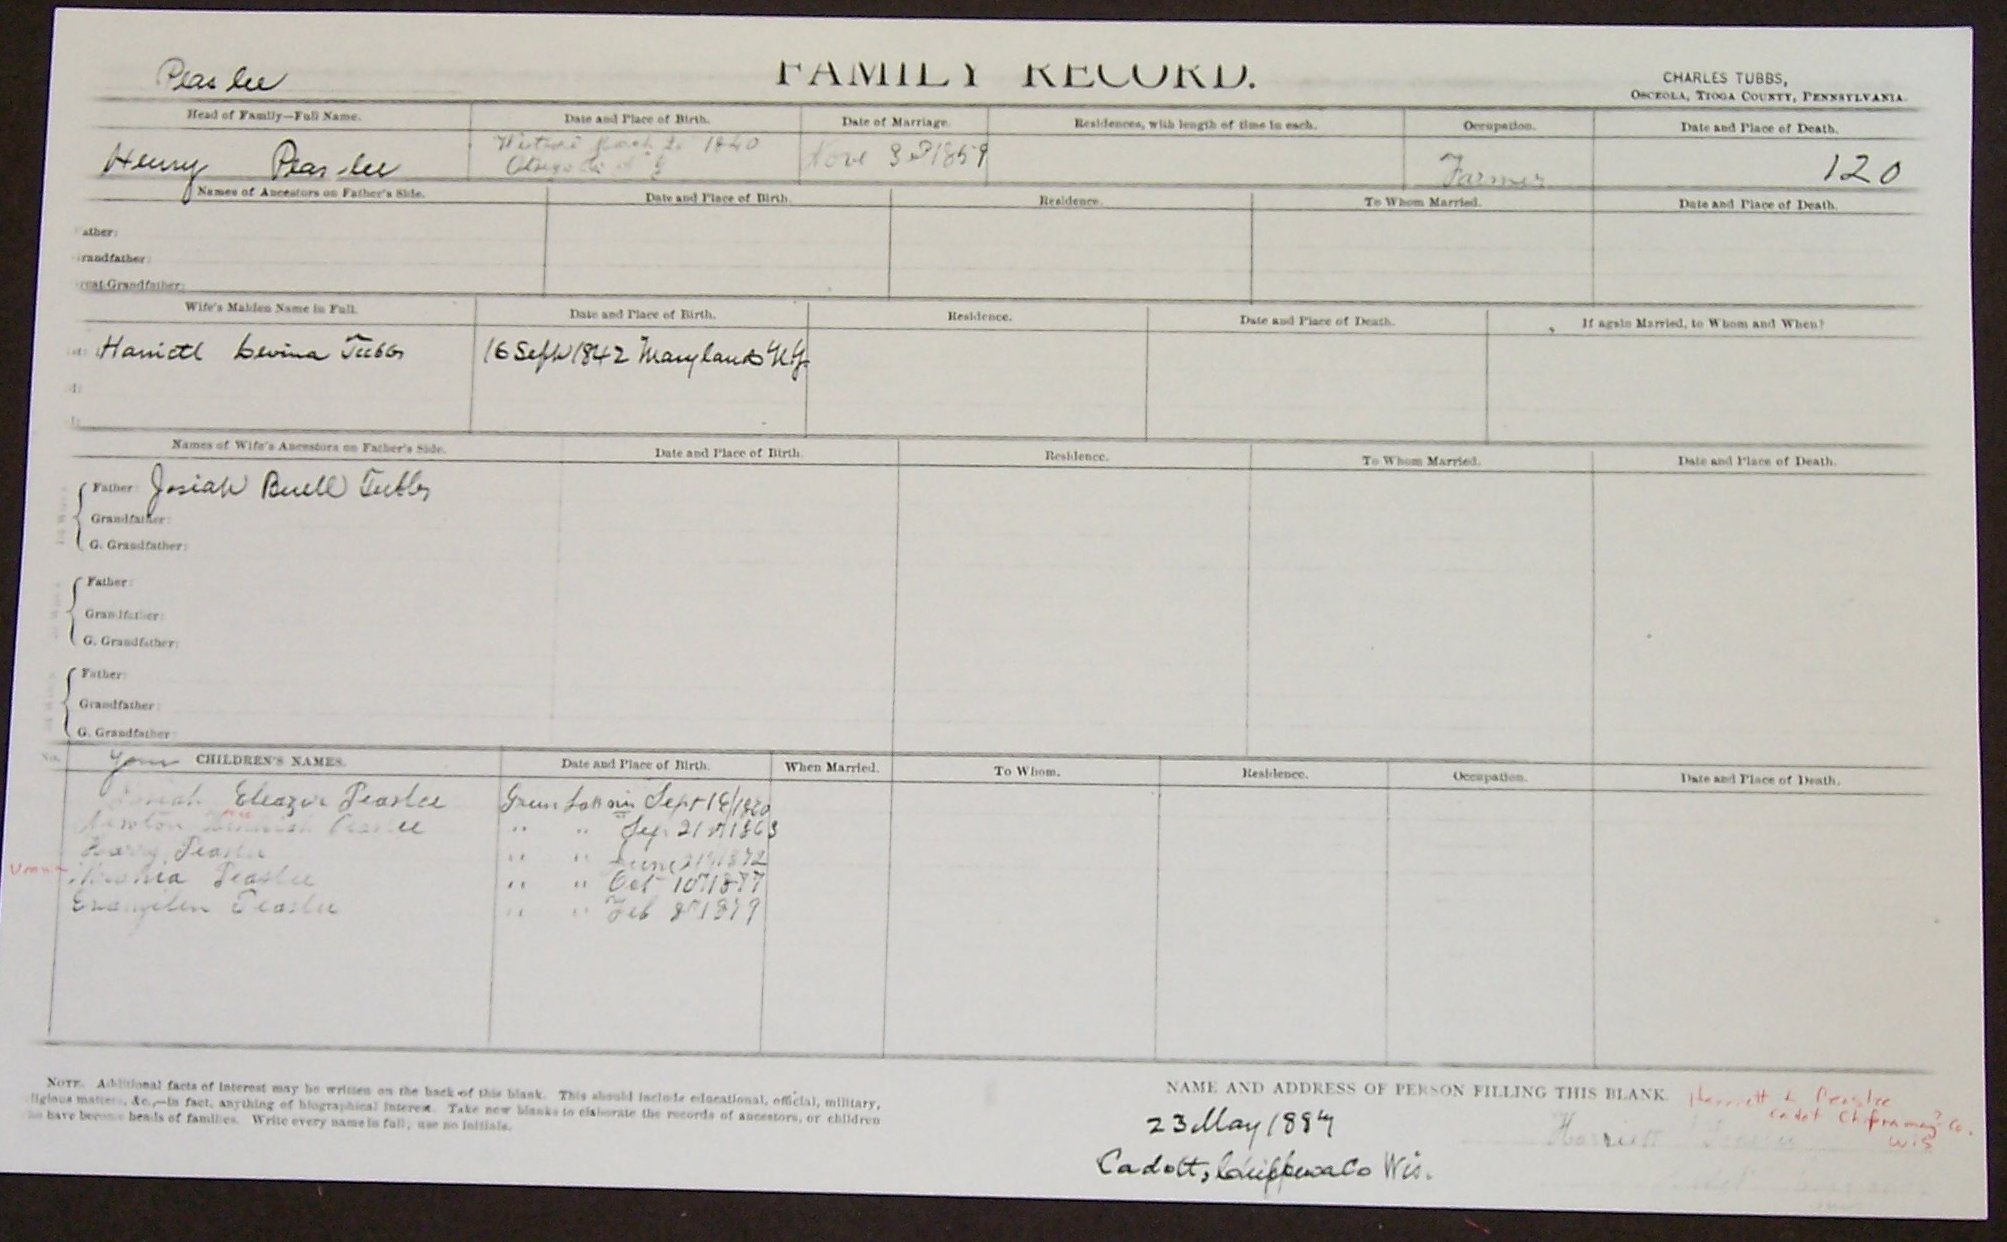 Peaslee
FAMILY RECORD.
CHARLES TUBBS,
OSCEOLA, TIOGA COUNTY, PENNSYLVANIA.
Head of Family—Full Name. Date and Place of Birth. Date of Marriage. Residences, with length of time in each. Occupation. Date and Place of Death.
Henry Peaslee 1840 Nove 3 1859 Farmer 120
Names of Ancestors on Father's Side. Date and Place of Birth. Residence. To Whom Married. Date and Place of Death.
ather:
randfather:
reat Grandfather:
Wife's Maiden Name in Full. Date and Place of Birth. Residence. Date and Place of Death. If again Married, to Whom and When?
Harriett Levina Tubbs 16 Sept 1842 Maryland N.Y.
Names of Wife's Ancestors on Father's Side. Date and Place of Birth. Residence. To Whom Married. Date and Place of Death.
Father: Josiah Buell Tubbs
Grandfather:
G. Grandfather:
Father:
Grandfather:
G. Grandfather:
Father:
Grandfather:
G. Grandfather:
No. Your CHILDREN'S NAMES. Date and Place of Birth. When Married. To Whom. Residence. Occupation. Date and Place of Death.
Josiah Eleazer Peaslee Sept 18/1860
Newton Peaslee " " Sep 21st 1863
Harry Peaslee " " June 21st 1872
Peaslee " " Oct 10th 1877
Evangelen Peaslee " " Feb 8th 1879
NOTE. Additional facts of interest may be written on the back of this blank. This should include educational, official, military,
ligious matters, &c.,—in fact, anything of biographical interest. Take new blanks to elaborate the records of ancestors, or children
ho have become heads of families. Write every name in full; use no initials.
NAME AND ADDRESS OF PERSON FILLING THIS BLANK.
Harriett L Peaslee
Cadot Chippraway? Co.
Wis
23 May 1887
Harriett
Cadott, Chippewa Co Wis.